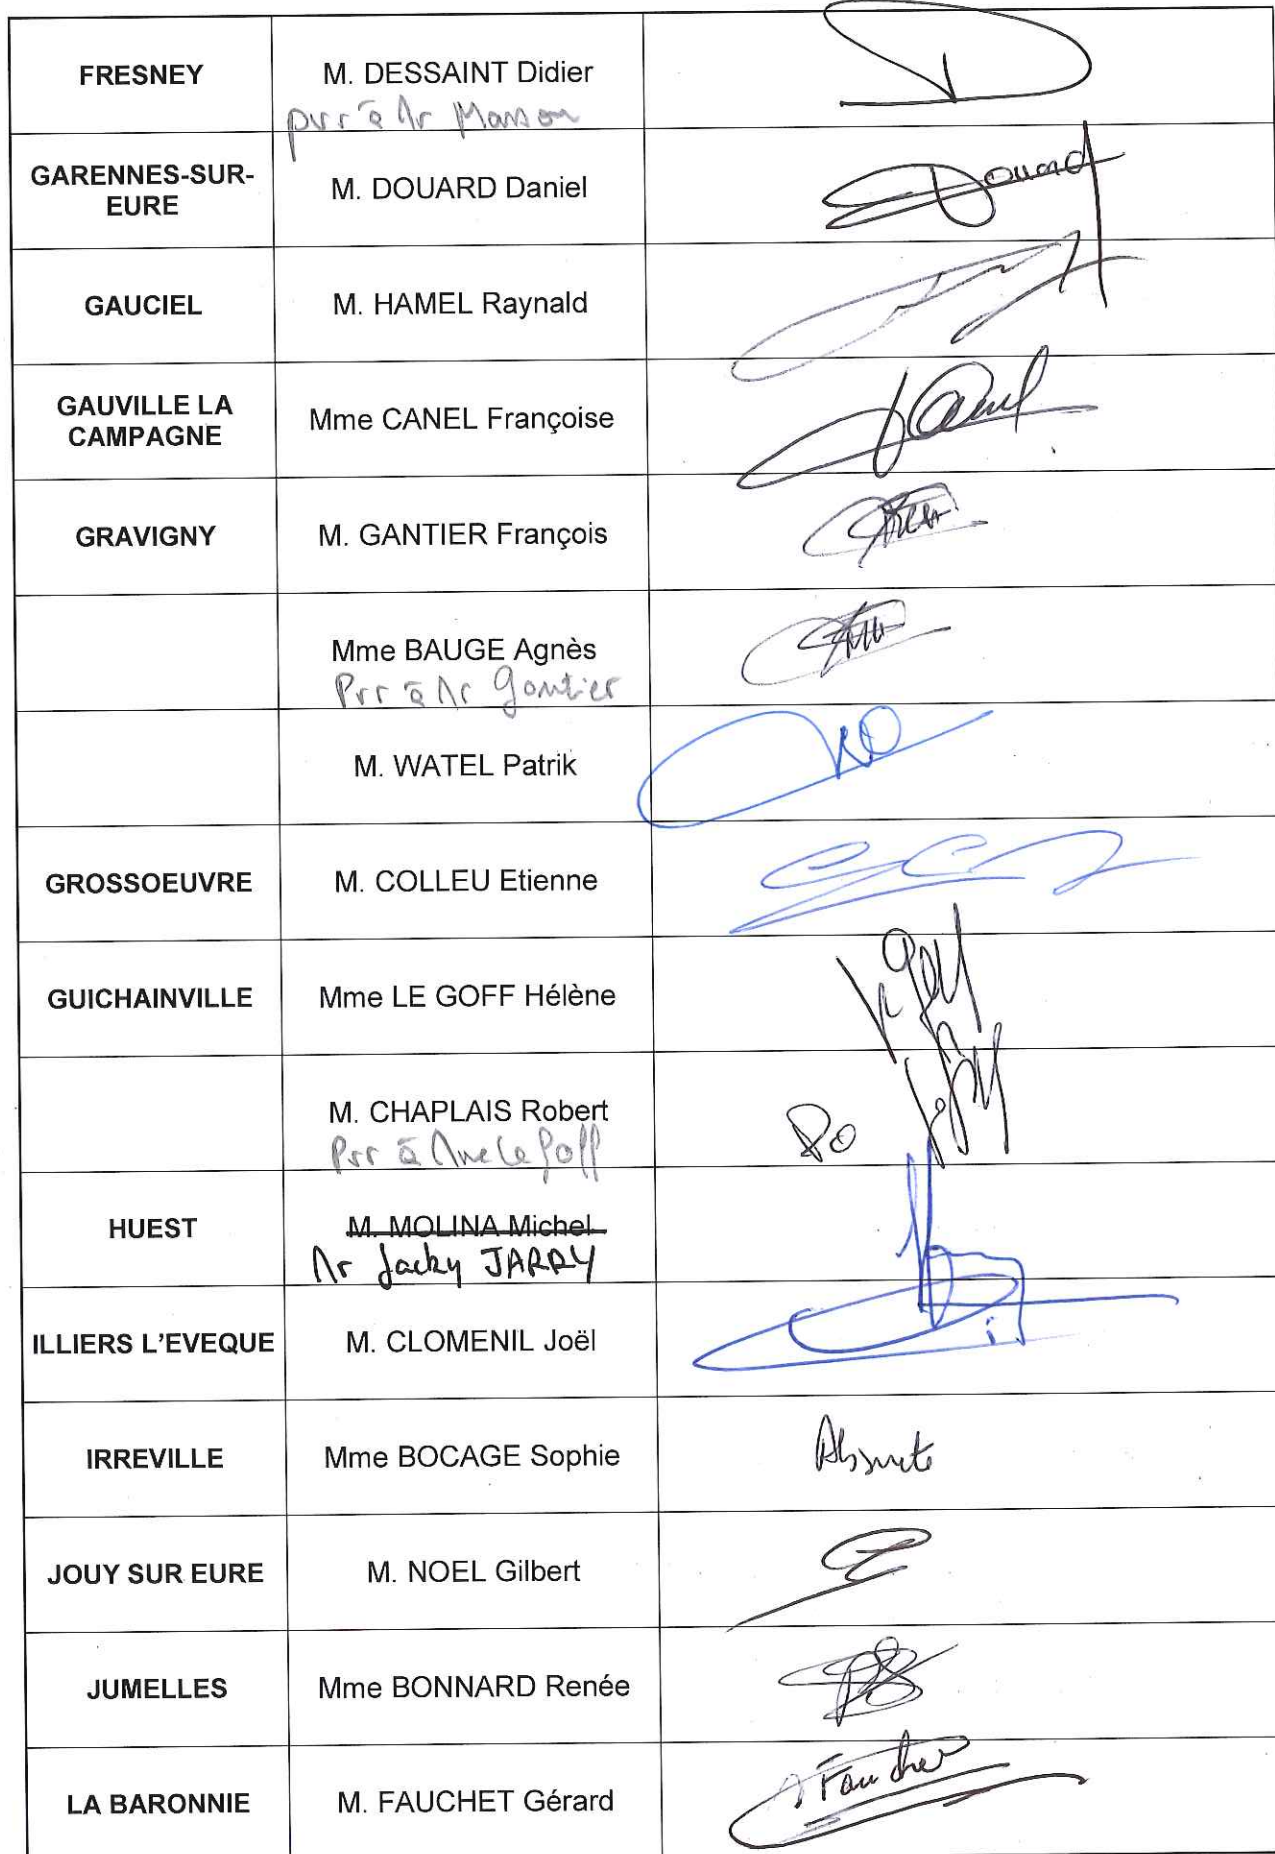 FRESNEY
M. DESSAINT Didier
pvr à Mr Masson
GARENNES-SUR-
EURE
M. DOUARD Daniel
Douard
GAUCIEL
M. HAMEL Raynald
GAUVILLE LA
CAMPAGNE
Mme CANEL Françoise
GRAVIGNY
M. GANTIER François
Mme BAUGE Agnès
Pvr à Mr Gantier
M. WATEL Patrik
GROSSOEUVRE
M. COLLEU Etienne
GUICHAINVILLE
Mme LE GOFF Hélène
M. CHAPLAIS Robert
Pvr à Mme Le Goff
Po
HUEST
M. MOLINA Michel
Mr Jacky JARRY
ILLIERS L'EVEQUE
M. CLOMENIL Joël
IRREVILLE
Mme BOCAGE Sophie
Absente
JOUY SUR EURE
M. NOEL Gilbert
JUMELLES
Mme BONNARD Renée
LA BARONNIE
M. FAUCHET Gérard
Fauchet